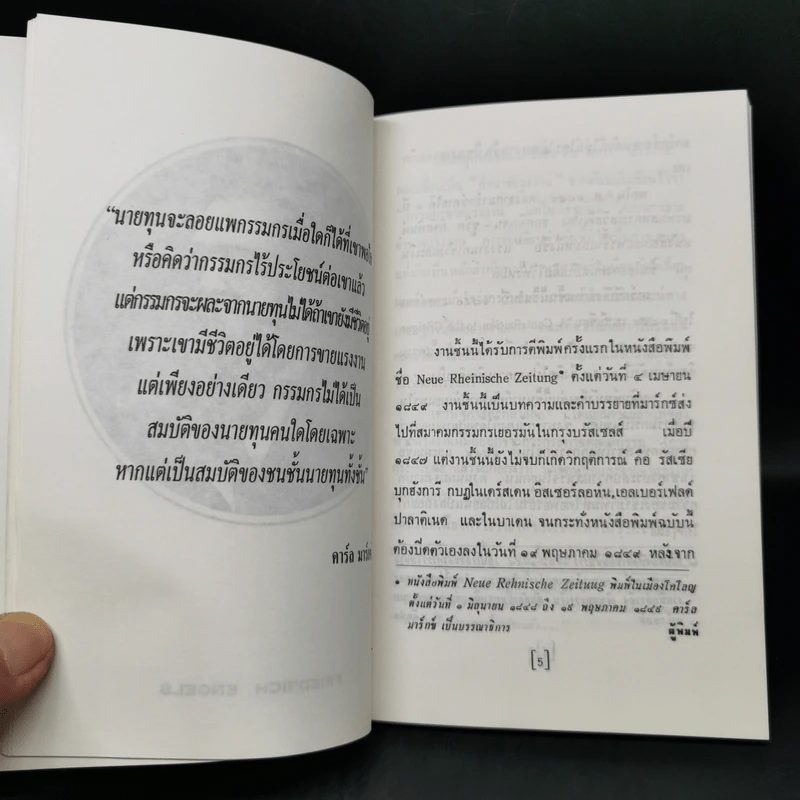 “นายทุนจะลอยแพกรรมกรเมื่อใดก็ได้ที่เขาพอใจ
หรือคิดว่ากรรมกรไร้ประโยชน์ต่อเขาแล้ว
แต่กรรมกรจะผละจากนายทุนไม่ได้ถ้าเขายังมีชีวิตอยู่
เพราะเขามีชีวิตอยู่ได้โดยการขายแรงงาน
แต่เพียงอย่างเดียว กรรมกรไม่ได้เป็น
สมบัติของนายทุนคนใดโดยเฉพาะ
หากแต่เป็นสมบัติของชนชั้นนายทุนทั้งชั้น”
คาร์ล
FRIEDRICH ENGELS
งานชิ้นนี้ได้รับการตีพิมพ์ครั้งแรกในหนังสือพิมพ์
ชื่อ Neue Rheinische Zeitung* ตั้งแต่วันที่ ๔ เมษายน
๑๘๔๙ งานชิ้นนี้เป็นบทความและคำบรรยายที่มาร์กซ์ส่ง
ไปที่สมาคมกรรมกรเยอรมันในกรุงบรัสเซลส์ เมื่อปี
๑๘๔๗ แต่งานชิ้นนี้ยังไม่จบก็เกิดวิกฤติการณ์ คือ รัสเซีย
บุกฮังการี กบฏในเดร์สเดน อิสเซอร์ลอห์น,เอลเบอร์เฟลด์
ปาลาติเนต และในบาเดน จนกระทั่งหนังสือพิมพ์ฉบับนี้
ต้องปิดตัวเองลงในวันที่ ๑๙ พฤษภาคม ๑๘๔๙ หลังจาก
* หนังสือพิมพ์ Neue Rehnische Zeituug พิมพ์ในเมืองโคโลญ
ตั้งแต่วันที่ ๑ มิถุนายน ๑๘๔๘ ถึง ๑๙ พฤษภาคม ๑๘๔๙ คาร์ล
มาร์กซ์ เป็นบรรณาธิการ ผู้พิมพ์
[5]